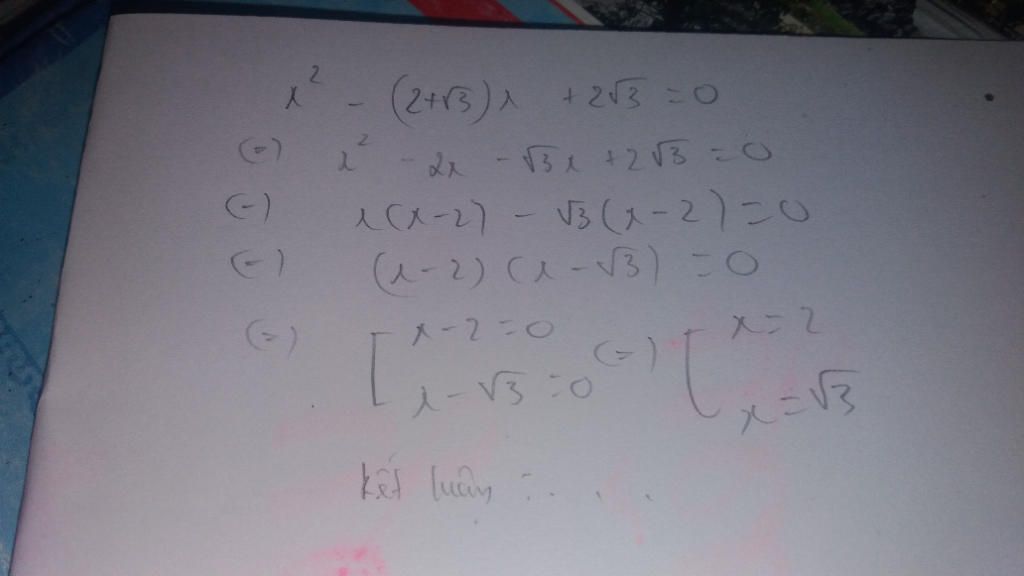 x² - (2+√3)x + 2√3 = 0
(=) x² - 2x - √3x + 2√3 = 0
(=) x(x-2) - √3(x-2) = 0
(=) (x-2)(x-√3) = 0
(=) [ x-2=0 (=) [ x=2
x-√3=0 x=√3
kết luận : . . .